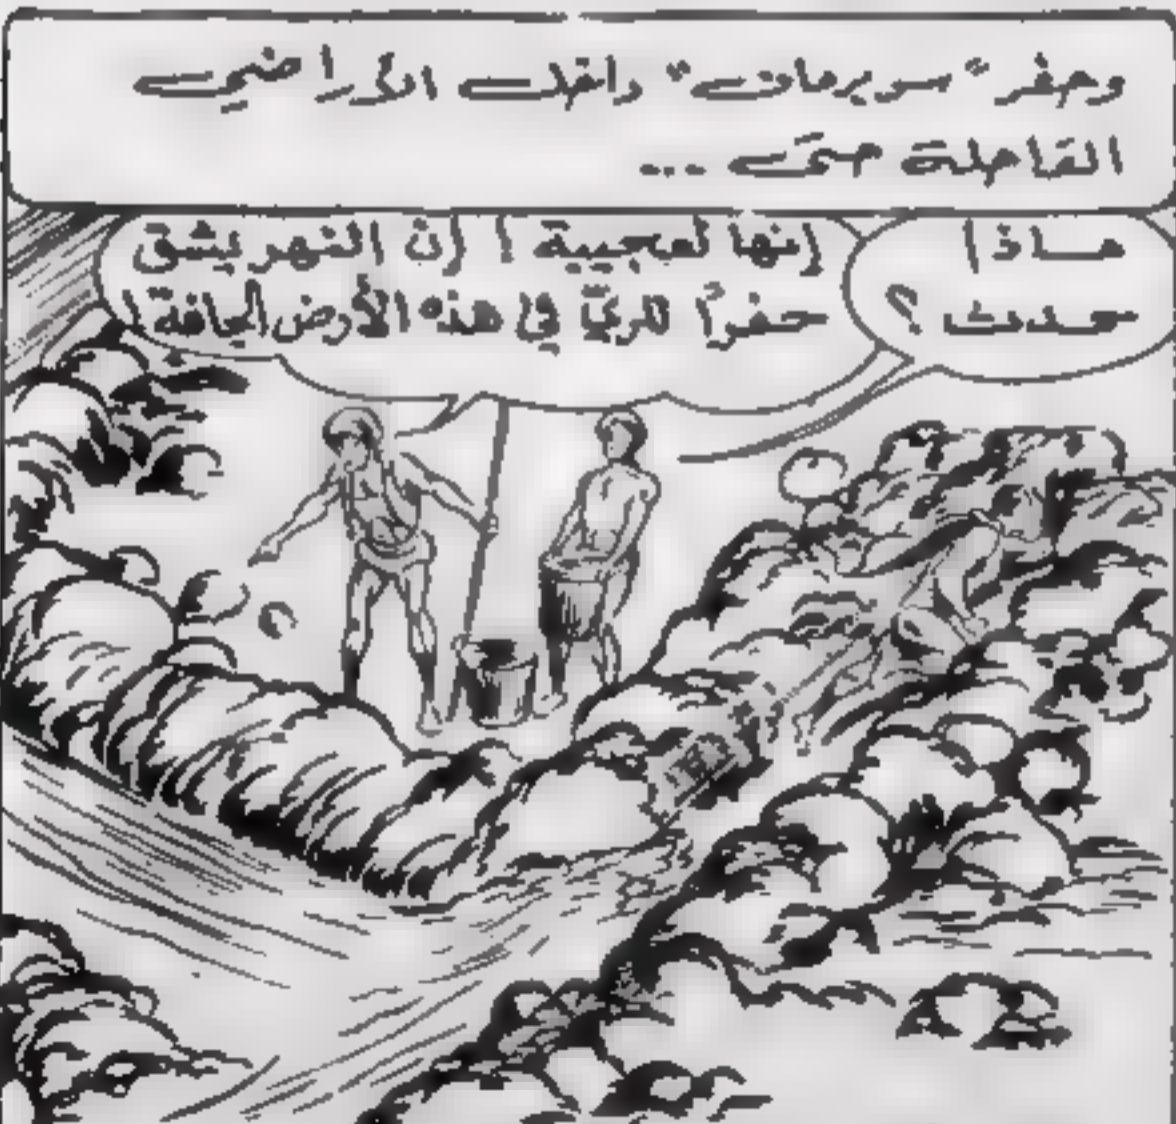 وحفر "سوبرمان" داخل الأراضي
القاحلة حتى ...
ماذا
حدث ؟
إنها لعجيبة ! إن النهر يشق
حفراً للريّ في هذه الأرض الجافة !